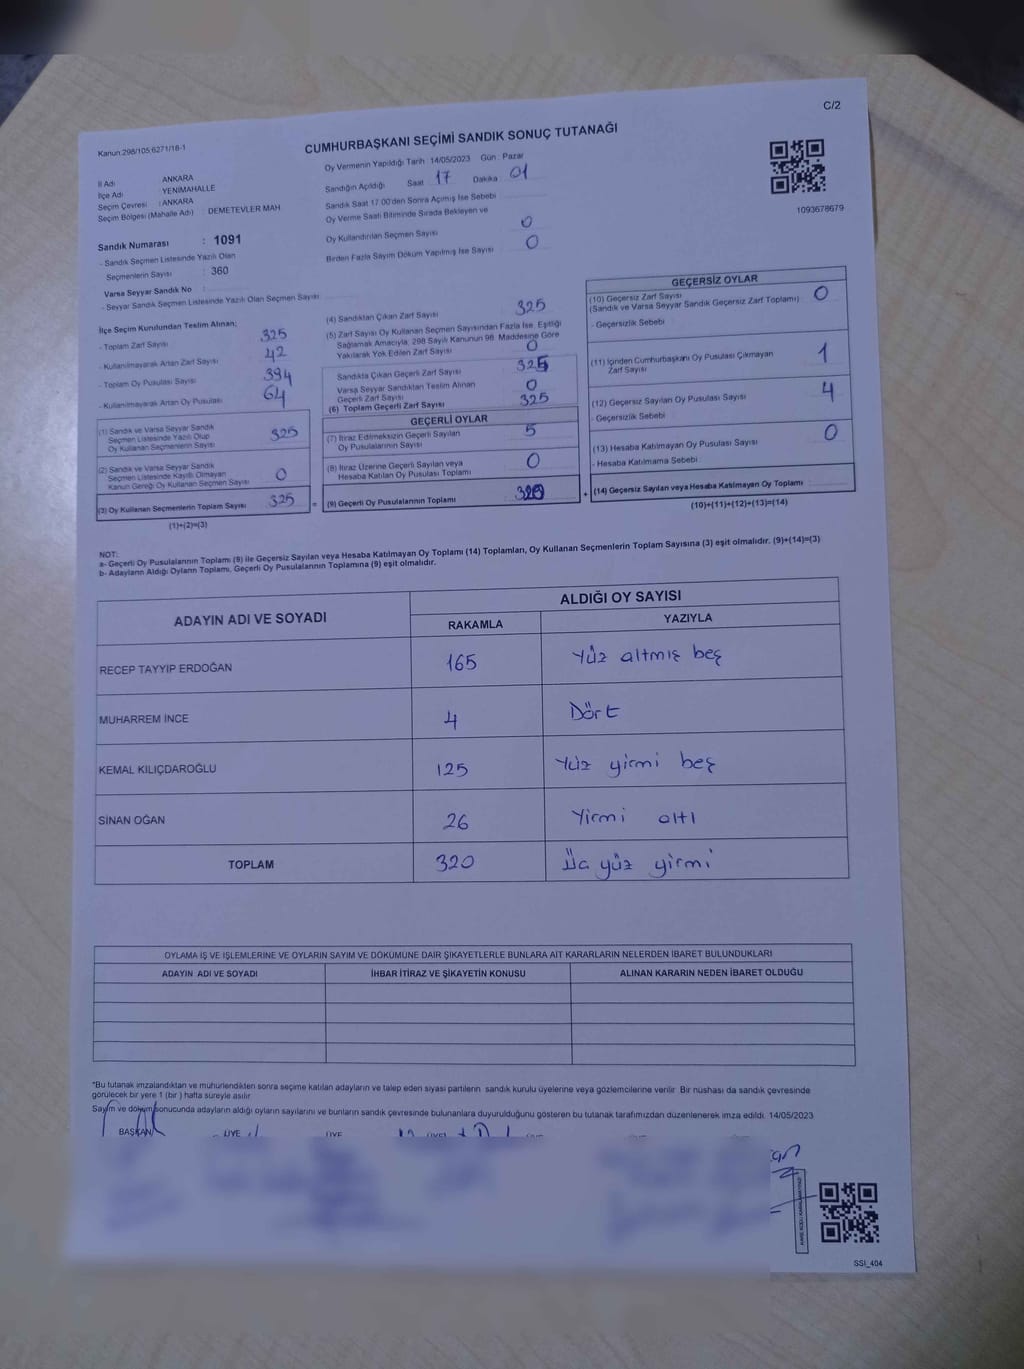 C/2
Kanun:298/105;6271/18-1
CUMHURBAŞKANI SEÇİMİ SANDIK SONUÇ TUTANAĞI
İl Adı : ANKARA
İlçe Adı : YENİMAHALLE
Seçim Çevresi : ANKARA
Seçim Bölgesi (Mahalle Adı) : DEMETEVLER MAH
Sandık Numarası : 1091
- Sandık Seçmen Listesinde Yazılı Olan
Seçmenlerin Sayısı : 360
Varsa Seyyar Sandık No :
- Seyyar Sandık Seçmen Listesinde Yazılı Olan Seçmen Sayısı
Oy Vermenin Yapıldığı Tarih : 14/05/2023 Gün : Pazar
Sandığın Açıldığı Saat 17 Dakika 01
Sandık Saat 17:00'den Sonra Açılmış İse Sebebi
Oy Verme Saati Bitiminde Sırada Bekleyen ve
Oy Kullandırılan Seçmen Sayısı 0
Birden Fazla Sayım Döküm Yapılmış İse Sayısı 0
1093678679
İlçe Seçim Kurulundan Teslim Alınan;
- Toplam Zarf Sayısı 325
- Kullanılmayarak Artan Zarf Sayısı 42
- Toplam Oy Pusulası Sayısı 394
- Kullanılmayarak Artan Oy Pusulası 64
(1) Sandık ve Varsa Seyyar Sandık
Seçmen Listesinde Yazılı Olup
Oy Kullanan Seçmenlerin Sayısı 325
(2) Sandık ve Varsa Seyyar Sandık
Seçmen Listesinde Kayıtlı Olmayan
Kanun Gereği Oy Kullanan Seçmen Sayısı 0
(3) Oy Kullanan Seçmenlerin Toplam Sayısı 325
(1)+(2)=(3)
(4) Sandıktan Çıkan Zarf Sayısı 325
(5) Zarf Sayısı Oy Kullanan Seçmen Sayısından Fazla İse, Eşitliği
Sağlamak Amacıyla, 298 Sayılı Kanunun 98. Maddesine Göre
Yakılarak Yok Edilen Zarf Sayısı 0
Sandıkta Çıkan Geçerli Zarf Sayısı 325
Varsa Seyyar Sandıktan Teslim Alınan
Geçerli Zarf Sayısı 0
(6) Toplam Geçerli Zarf Sayısı 325
GEÇERLİ OYLAR
(7) İtiraz Edilmeksizin Geçerli Sayılan
Oy Pusulalarının Sayısı 5
(8) İtiraz Üzerine Geçerli Sayılan veya
Hesaba Katılan Oy Pusulası Toplamı 0
= (9) Geçerli Oy Pusulalarının Toplamı 320
GEÇERSİZ OYLAR
(10) Geçersiz Zarf Sayısı
(Sandık ve Varsa Seyyar Sandık Geçersiz Zarf Toplamı) 0
- Geçersizlik Sebebi
(11) İçinden Cumhurbaşkanı Oy Pusulası Çıkmayan
Zarf Sayısı 1
(12) Geçersiz Sayılan Oy Pusulası Sayısı 4
- Geçersizlik Sebebi
(13) Hesaba Katılmayan Oy Pusulası Sayısı 0
- Hesaba Katılmama Sebebi
+ (14) Geçersiz Sayılan veya Hesaba Katılmayan Oy Toplamı
(10)+(11)+(12)+(13)=(14)
NOT:
a- Geçerli Oy Pusulalarının Toplamı (9) ile Geçersiz Sayılan veya Hesaba Katılmayan Oy Toplamı (14) Toplamları, Oy Kullanan Seçmenlerin Toplam Sayısına (3) eşit olmalıdır. (9)+(14)=(3)
b- Adayların Aldığı Oyların Toplamı, Geçerli Oy Pusulalarının Toplamına (9) eşit olmalıdır.
ADAYIN ADI VE SOYADI ALDIĞI OY SAYISI
RAKAMLA YAZIYLA
RECEP TAYYİP ERDOĞAN 165 Yüz altmış beş
MUHARREM İNCE 4 Dört
KEMAL KILIÇDAROĞLU 125 Yüz yirmi beş
SİNAN OĞAN 26 Yirmi altı
TOPLAM 320 Üç yüz yirmi
OYLAMA İŞ VE İŞLEMLERİNE VE OYLARIN SAYIM VE DÖKÜMÜNE DAİR ŞİKAYETLERLE BUNLARA AİT KARARLARIN NELERDEN İBARET BULUNDUKLARI
ADAYIN ADI VE SOYADI İHBAR İTİRAZ VE ŞİKAYETİN KONUSU ALINAN KARARIN NEDEN İBARET OLDUĞU
*Bu tutanak imzalandıktan ve mühürlendikten sonra seçime katılan adayların ve talep eden siyasi partilerin sandık kurulu üyelerine veya gözlemcilerine verilir. Bir nüshası da sandık çevresinde
görülecek bir yere 1 (bir) hafta süreyle asılır.
Sayım ve döküm sonucunda adayların aldığı oyların sayılarını ve bunların sandık çevresinde bulunanlara duyurulduğunu gösteren bu tutanak tarafımızdan düzenlenerek imza edildi. 14/05/2023
BAŞKAN ÜYE ÜYE
SSI_404